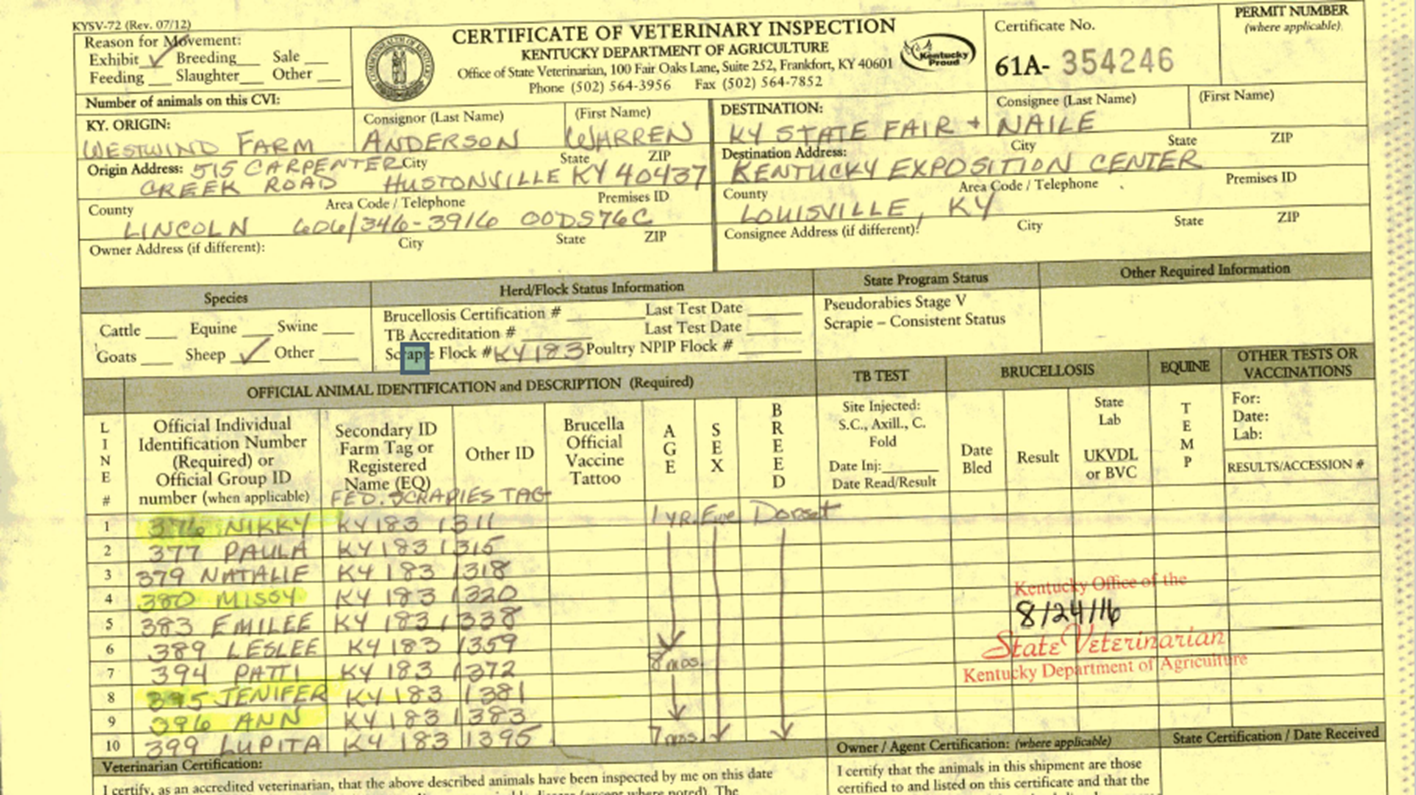 KYSV-72 (Rev. 07/12)
Reason for Movement:
Exhibit ✓ Breeding___ Sale ___
Feeding ___ Slaughter___ Other ___
Number of animals on this CVI:
CERTIFICATE OF VETERINARY INSPECTION
KENTUCKY DEPARTMENT OF AGRICULTURE
Office of State Veterinarian, 100 Fair Oaks Lane, Suite 252, Frankfort, KY 40601
Phone (502) 564-3956 Fax (502) 564-7852
Kentucky Proud
Certificate No.
61A- 354246
PERMIT NUMBER
(where applicable)
KY. ORIGIN: Consignor (Last Name) (First Name)
WESTWIND FARM ANDERSON WARREN
Origin Address: City State ZIP
515 CARPENTER
CREEK ROAD HUSTONVILLE KY 40437
County Area Code / Telephone Premises ID
LINCOLN 606/346-3916 00DS76C
Owner Address (if different): City State ZIP
DESTINATION: Consignee (Last Name) (First Name)
KY STATE FAIR + NAILE
Destination Address: City State ZIP
KENTUCKY EXPOSITION CENTER
County Area Code / Telephone Premises ID
LOUISVILLE, KY
Consignee Address (if different): City State ZIP
Species
Cattle ___ Equine ___ Swine ___
Goats ___ Sheep ✓ Other ___
Herd/Flock Status Information
Brucellosis Certification # ___ Last Test Date ___
TB Accreditation # ___ Last Test Date ___
Scrapie Flock # KY183 Poultry NPIP Flock # ___
State Program Status
Pseudorabies Stage V
Scrapie – Consistent Status
Other Required Information
OFFICIAL ANIMAL IDENTIFICATION and DESCRIPTION (Required)
TB TEST
BRUCELLOSIS
EQUINE
OTHER TESTS OR
VACCINATIONS
LINE #
Official Individual
Identification Number
(Required) or
Official Group ID
number (when applicable)
Secondary ID
Farm Tag or
Registered
Name (EQ)
FED. SCRAPIES TAG
Other ID
Brucella
Official
Vaccine
Tattoo
AGE
SEX
BREED
Site Injected:
S.C., Axill., C.
Fold
Date Inj:___
Date Read/Result
Date
Bled
Result
State
Lab
UKVDL
or BVC
TEMP
For:
Date:
Lab:
RESULTS/ACCESSION #
1 376 NIKKY KY183 1311 1 yr. Ewe Dorset
2 377 PAULA KY183 1315
3 379 NATALIE KY183 1318
4 380 MISSY KY183 1320
5 383 EMILEE KY183 1338
6 389 LESLEE KY183 1359
7 394 PATTI KY183 1372 8 mos.
8 395 JENIFER KY183 1381
9 396 ANN KY183 1383
10 399 LUPITA KY183 1395 7 mos.
Kentucky Office of the
8/24/16
State Veterinarian
Kentucky Department of Agriculture
Veterinarian Certification:
I certify, as an accredited veterinarian, that the above described animals have been inspected by me on this date
(except where noted). The
Owner / Agent Certification: (where applicable)
I certify that the animals in this shipment are those
certified to and listed on this certificate and that the
State Certification / Date Received